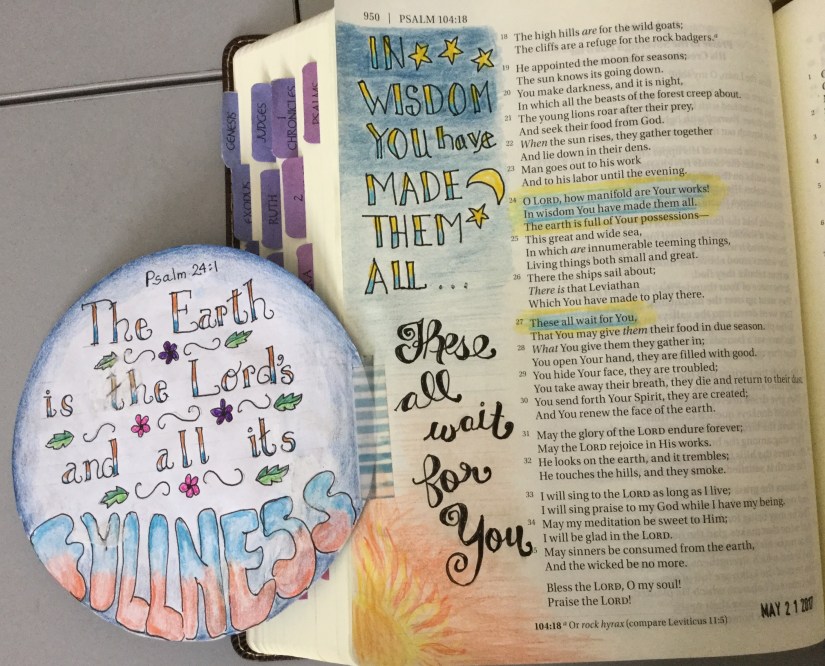 950 | PSALM 104:18
IN
WISDOM
YOU have
MADE
THEM
ALL ...
These
all
wait
for
You
18 The high hills are for the wild goats;
The cliffs are a refuge for the rock badgers.a
19 He appointed the moon for seasons;
The sun knows its going down.
20 You make darkness, and it is night,
In which all the beasts of the forest creep about.
21 The young lions roar after their prey,
And seek their food from God.
22 When the sun rises, they gather together
And lie down in their dens.
23 Man goes out to his work
And to his labor until the evening.
24 O LORD, how manifold are Your works!
In wisdom You have made them all.
The earth is full of Your possessions—
25 This great and wide sea,
In which are innumerable teeming things,
Living things both small and great.
26 There the ships sail about;
There is that Leviathan
Which You have made to play there.
27 These all wait for You,
That You may give them their food in due season.
28 What You give them they gather in;
You open Your hand, they are filled with good.
29 You hide Your face, they are troubled;
You take away their breath, they die and return to their
30 You send forth Your Spirit, they are created;
And You renew the face of the earth.
31 May the glory of the LORD endure forever;
May the LORD rejoice in His works.
32 He looks on the earth, and it trembles;
He touches the hills, and they smoke.
33 I will sing to the LORD as long as I live;
I will sing praise to my God while I have my being.
34 May my meditation be sweet to Him;
I will be glad in the LORD.
35 May sinners be consumed from the earth,
And the wicked be no more.
Bless the LORD, O my soul!
Praise the LORD!
104:18 a Or rock hyrax (compare Leviticus 11:5)
MAY 2 1 2017
GENESIS
JUDGES
1 CHRONICLES
PSALMS
EXODUS
RUTH
2
Psalm 24:1
The Earth
is the Lord's
and all its
FULLNESS